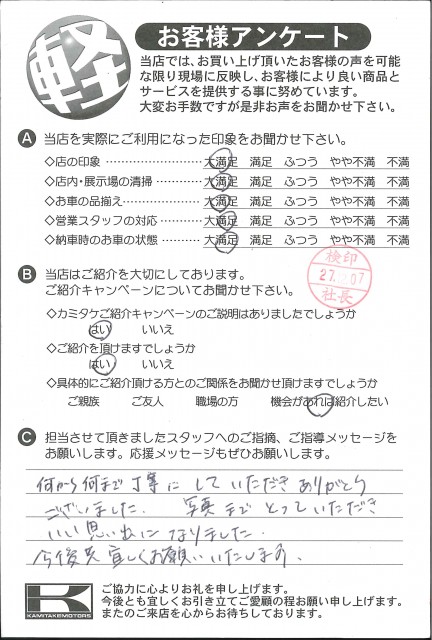 軽
お客様アンケート
当店では、お買い上げ頂いたお客様の声を可能
な限り現場に反映し、お客様により良い商品と
サービスを提供する事に努めています。
大変お手数ですが是非お声をお聞かせ下さい。
A 当店を実際にご利用になった印象をお聞かせ下さい。
◇店の印象 ………………… 大満足 満足 ふつう やや不満 不満
◇店内・展示場の清掃 ……… 大満足 満足 ふつう やや不満 不満
◇お車の品揃え……………… 大満足 満足 ふつう やや不満 不満
◇営業スタッフの対応 ……… 大満足 満足 ふつう やや不満 不満
◇納車時のお車の状態 ……… 大満足 満足 ふつう やや不満 不満
検印
社長
B 当店はご紹介を大切にしております。
ご紹介キャンペーンについてお聞かせ下さい。
◇カミタケご紹介キャンペーンのご説明はありましたでしょうか
はい いいえ
◇ご紹介を頂けますでしょうか
はい いいえ
◇具体的にご紹介頂ける方とのご関係をお聞かせ頂けますでしょうか
ご親族 ご友人 職場の方 機会があれば紹介したい
C 担当させて頂きましたスタッフへのご指摘、ご指導メッセージを
お願いします。応援メッセージもぜひお願いします。
何から何まで丁寧にしていただきありがとう
ございました。 写真までとっていただき
いい思い出になりました。
今後共宜しくお願いいたします。
K
KAMITAKEMOTORS
ご協力に心よりお礼を申し上げます。
今後とも宜しくお引き立てご愛顧の程お願い申し上げます。
またのご来店を心からお待ちしております。